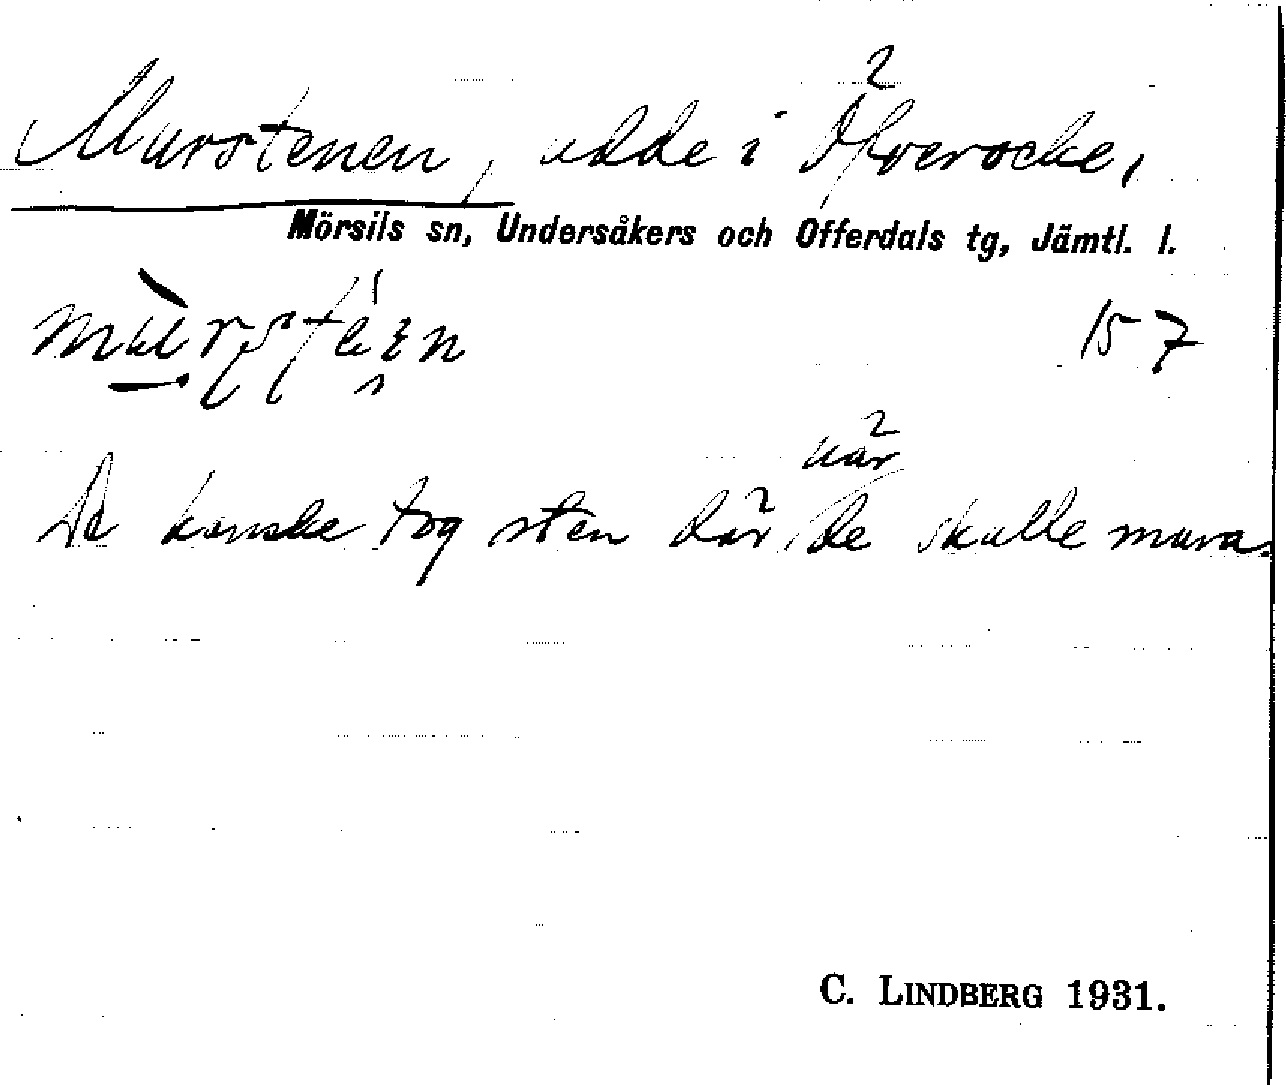 Murstenen, udde i Öfverocke,
Mörsils sn, Undersåkers och Offerdals tg, Jämtl. l.
157
när
De kanske tog sten där de skulle mura.
C. LINDBERG 1931.